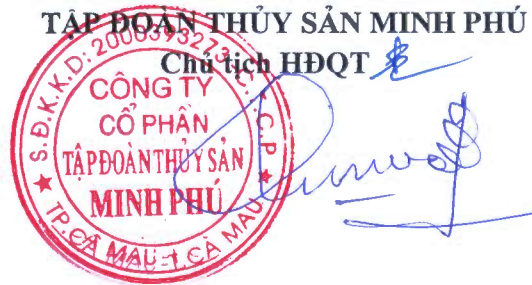 TẬP ĐOÀN THỦY SẢN MINH PHÚ
Chủ tịch HĐQT
S.Đ.K.K.D: 2000393273 - C.T.C.P
CÔNG TY
CỔ PHẦN
TẬP ĐOÀN THỦY SẢN
MINH PHÚ
TP.CÀ MAU - T.CÀ MAU